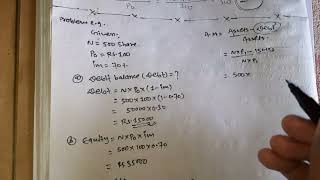 Problem 2.9.
Given,
N = 500 share
P0 = Rs. 100
im = 70%
a) Debit balance (Debt) = ?
Debt = N×P0×(1-im)
= 500×100×(1-0.70)
= 50000×0.3
= Rs. 15000
b) Equity = N×P0×im
= 500×100×0.70
= Rs 35000
A.M = Assets - Debt
Assets
= N×P1 - 15000
N×P1
= 500×